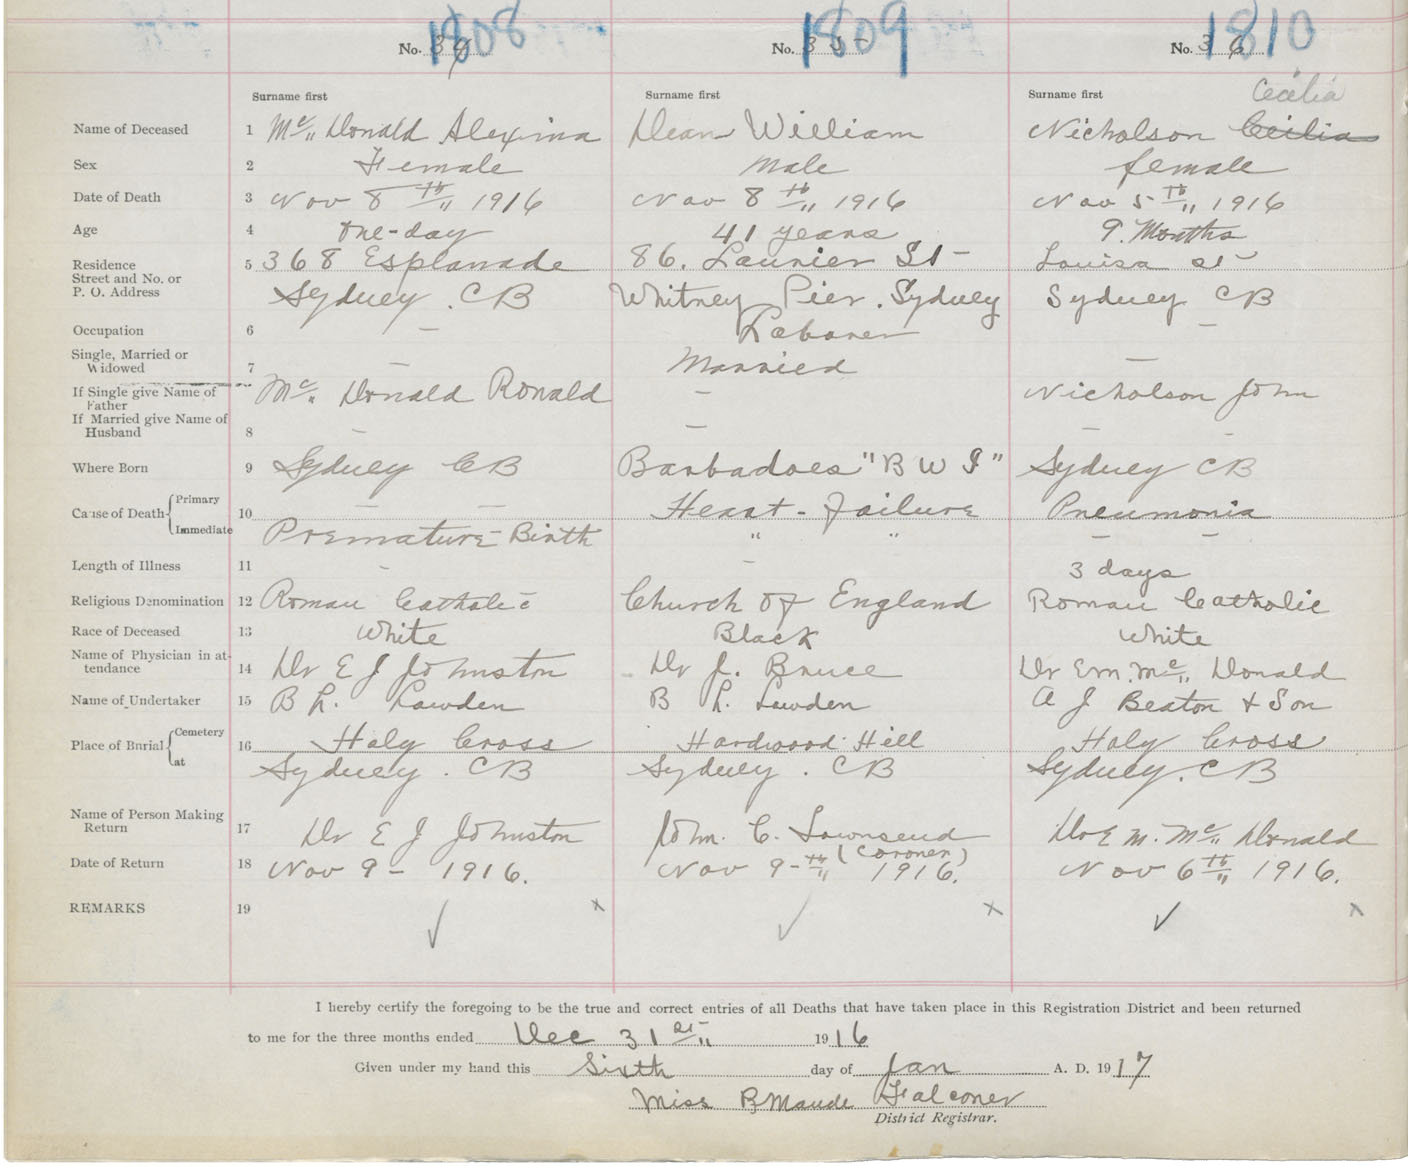 1808 1809 1810
No. 34 No. 35 No. 36
Surname first Surname first Surname first Cecelia
Name of Deceased 1 Mc,, Donald Alexina Dean William Nicholson Ceilia
Sex 2 Female male female
Date of Death 3 Nov 8th,, 1916 Nov 8th,, 1916 Nov 5th,, 1916
Age 4 One-day 41 years 9. Months
Residence 5 368 Esplanade 86. Laurier St- Louisa St
Street and No. or
P. O. Address Sydney . CB Whitney Pier . Sydney Sydney CB
Occupation 6 – Laborer –
Single, Married or
Widowed 7 – Married –
If Single give Name of Mc,, Donald Ronald – Nicholson John
Father
If Married give Name of
Husband 8 – – – –
Where Born 9 Sydney CB Barbadoes "B W I" Sydney CB
Primary
Cause of Death 10 – – Heart - failure Pneumonia
Immediate Premature Birth " " – –
Length of Illness 11 - - 3 days
Religious Denomination 12 Roman Catholic Church Of England Roman Catholic
Race of Deceased 13 White Black White
Name of Physician in at-
tendance 14 Dr E J Johnston Dr J. Bruce Dr E m. Mc,, Donald
Name of Undertaker 15 B L. Lawden B L. Lawden A J Beaton + Son
Cemetery
Place of Burial 16 Holy Cross Hardwood Hill Holy Cross
at Sydney . CB Sydney . CB Sydney. CB
Name of Person Making
Return 17 Dr E J Johnston John. C. Townsend Dr E M. Mc,, Donald
(Coroner)
Date of Return 18 Nov 9 – 1916. Nov 9-th,, 1916. Nov 6th,, 1916.
REMARKS 19 ✓ x ✓ x ✓ x
I hereby certify the foregoing to be the true and correct entries of all Deaths that have taken place in this Registration District and been returned
to me for the three months ended Dec 31st,, 1916
Given under my hand this Sixth day of Jan A. D. 1917
Miss B Maude Falconer
District Registrar.